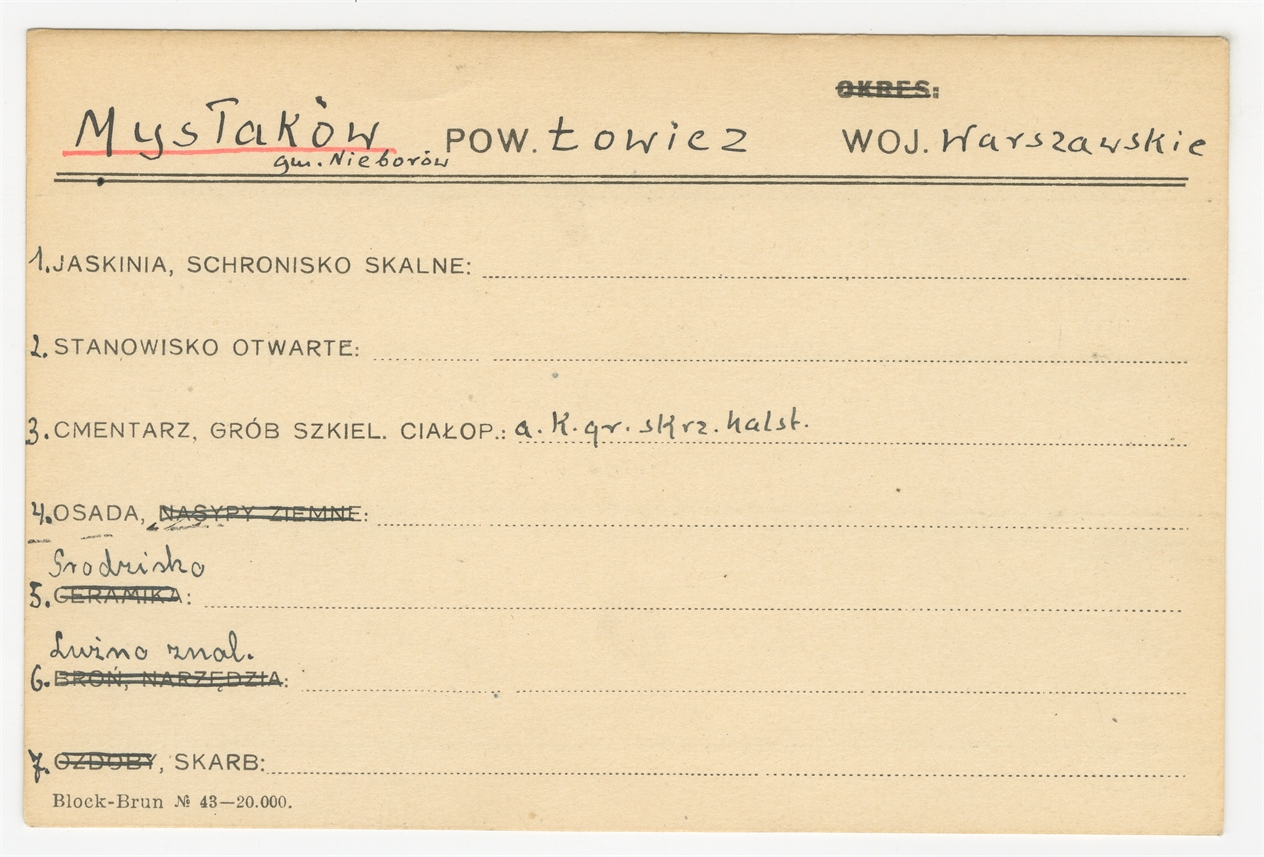 OKRES:
Mysłaków POW. Łowicz WOJ. Warszawskie
gm. Nieborów
1. JASKINIA, SCHRONISKO SKALNE:
2. STANOWISKO OTWARTE:
3. CMENTARZ, GRÓB SZKIEL. CIAŁOP.: a. K. gr. skrz. halst.
4. OSADA, NASYPY ZIEMNE:
Grodzisko
5. CERAMIKA:
Luźno znal.
6. BROŃ, NARZĘDZIA:
7. OZDOBY, SKARB:
Block-Brun № 43—20.000.